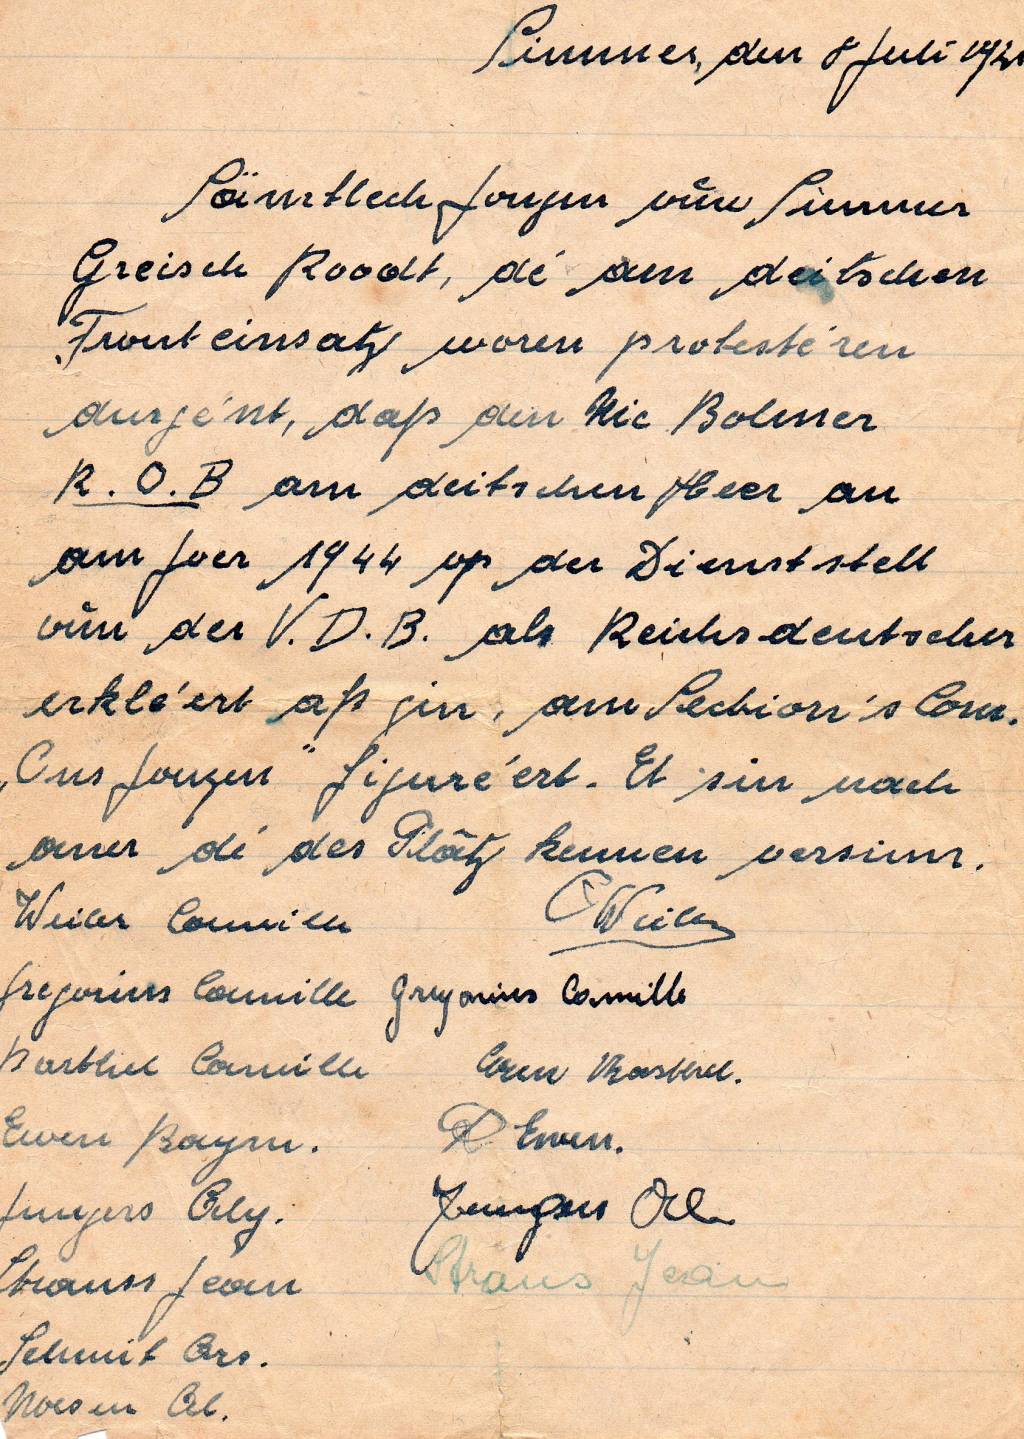 Simmer, den 8 Juli 194
Sämtlech Jongen vŭn Simmer
Greisch Roodt, dé am deitschen
Fronteinsatz woren protesté'ren
durgé'nt, daß den Nic Bolmer
R.O.B am deitschen Heer an
am Joer 1944 op der Dienststell
vŭn der V.D.B. als Reichsdeutscher
erklé'ert aß gin, am Section's Com.
„Ons Jongen" figuré'ert. Et sin nach
aner dé des Plâtz kennen versinn.
Weiler Camille C Weiler
Gregorius Camille Gregorius Camille
Barthel Camille Barthel.
Ewen Raym. R Ewen.
Jungers Jungers
Strauss Jean Straus Jean
Schmit
Noesen